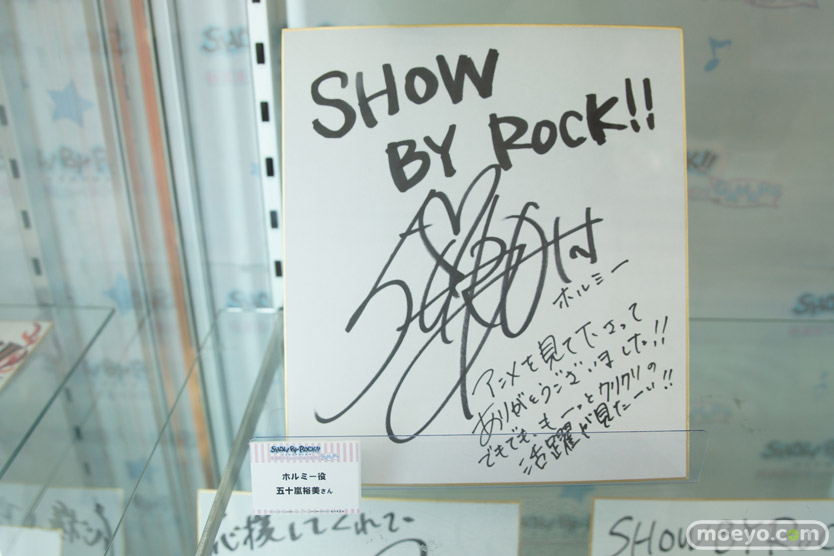 SHOW
BY ROCK!!
ホルミー
アニメを見て下さって
ありがとうございました!!
でもでも、もーっとクリクリの
活躍が見たーい!!
SHOW BY ROCK!!
ホルミー役
五十嵐裕美さん
応援してくれて、
SHOW BY R
moeyo.com